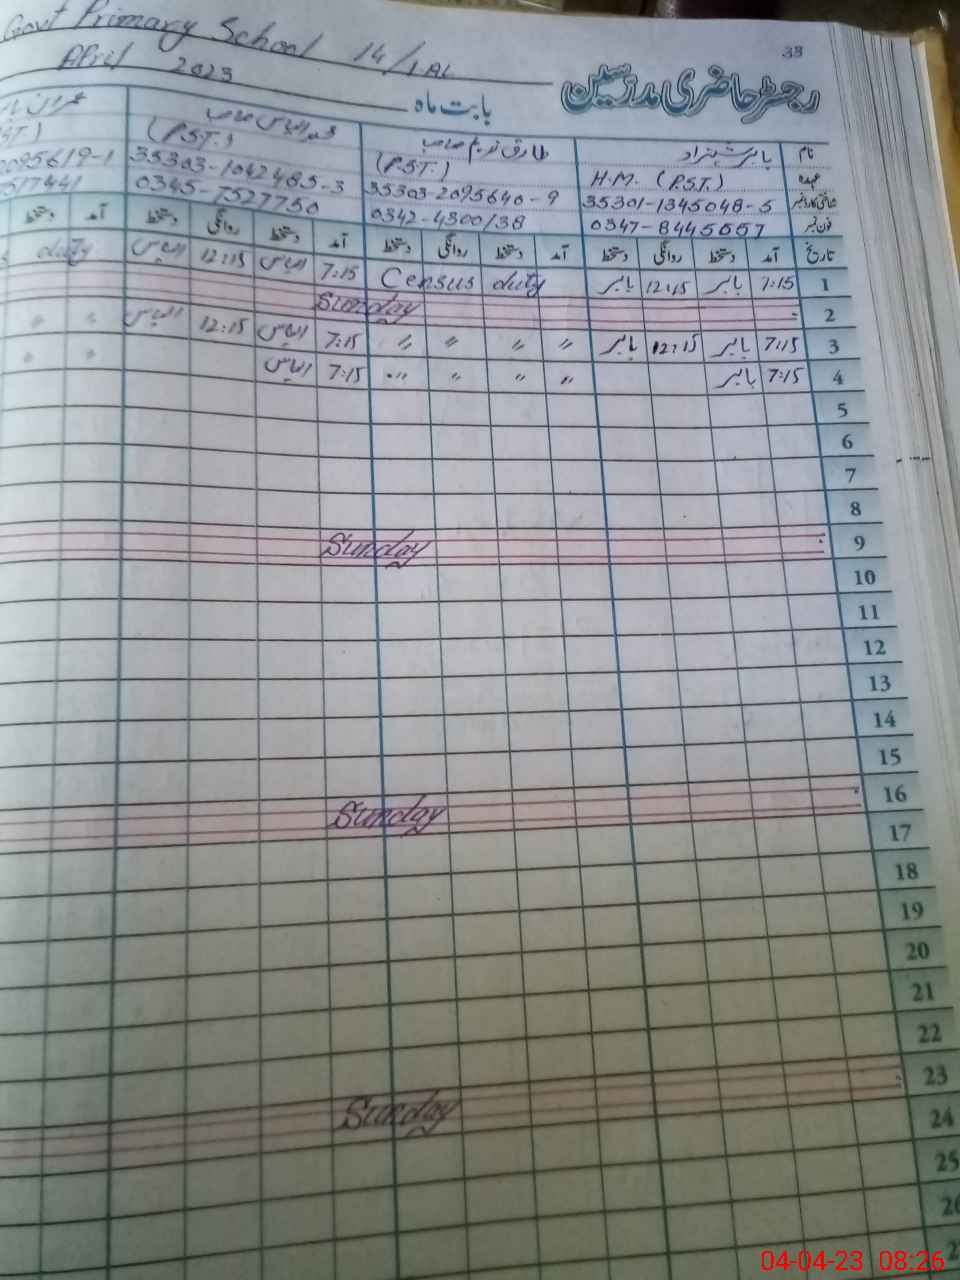 33
Govt Primary School 14/1AL
رجسٹر حاضری مدرسین
بابت ماہ April 2023
نام بابر شہزاد طارق ندیم صاحب محمد الیاس صاحب
عہدہ H.M. (P.S.T.) (P.S.T.) (P.S.T.) ST.)
شناختی کارڈ نمبر 35301-1345048-5 35303-2095640-9 35303-1042485-3 2095619-1
فون نمبر 0347-8445557 0342-4300138 0345-7527750 517441
تاریخ آمد دستخط روانگی دستخط آمد دستخط روانگی دستخط آمد دستخط روانگی دستخط آمد دستخط
1 7:15 بابر 12:15 بابر Census duty 7:15 الیاس 12:15 الیاس duty
2 Sunday
3 7:15 بابر 12:15 بابر " " " " 7:15 الیاس 12:15 الیاس " "
4 7:15 بابر " " " " 7:15 الیاس " "
5
6
7
8
9 Sunday
10
11
12
13
14
15
16 Sunday
17
18
19
20
21
22
23 Sunday
24
25
04-04-23 08:26